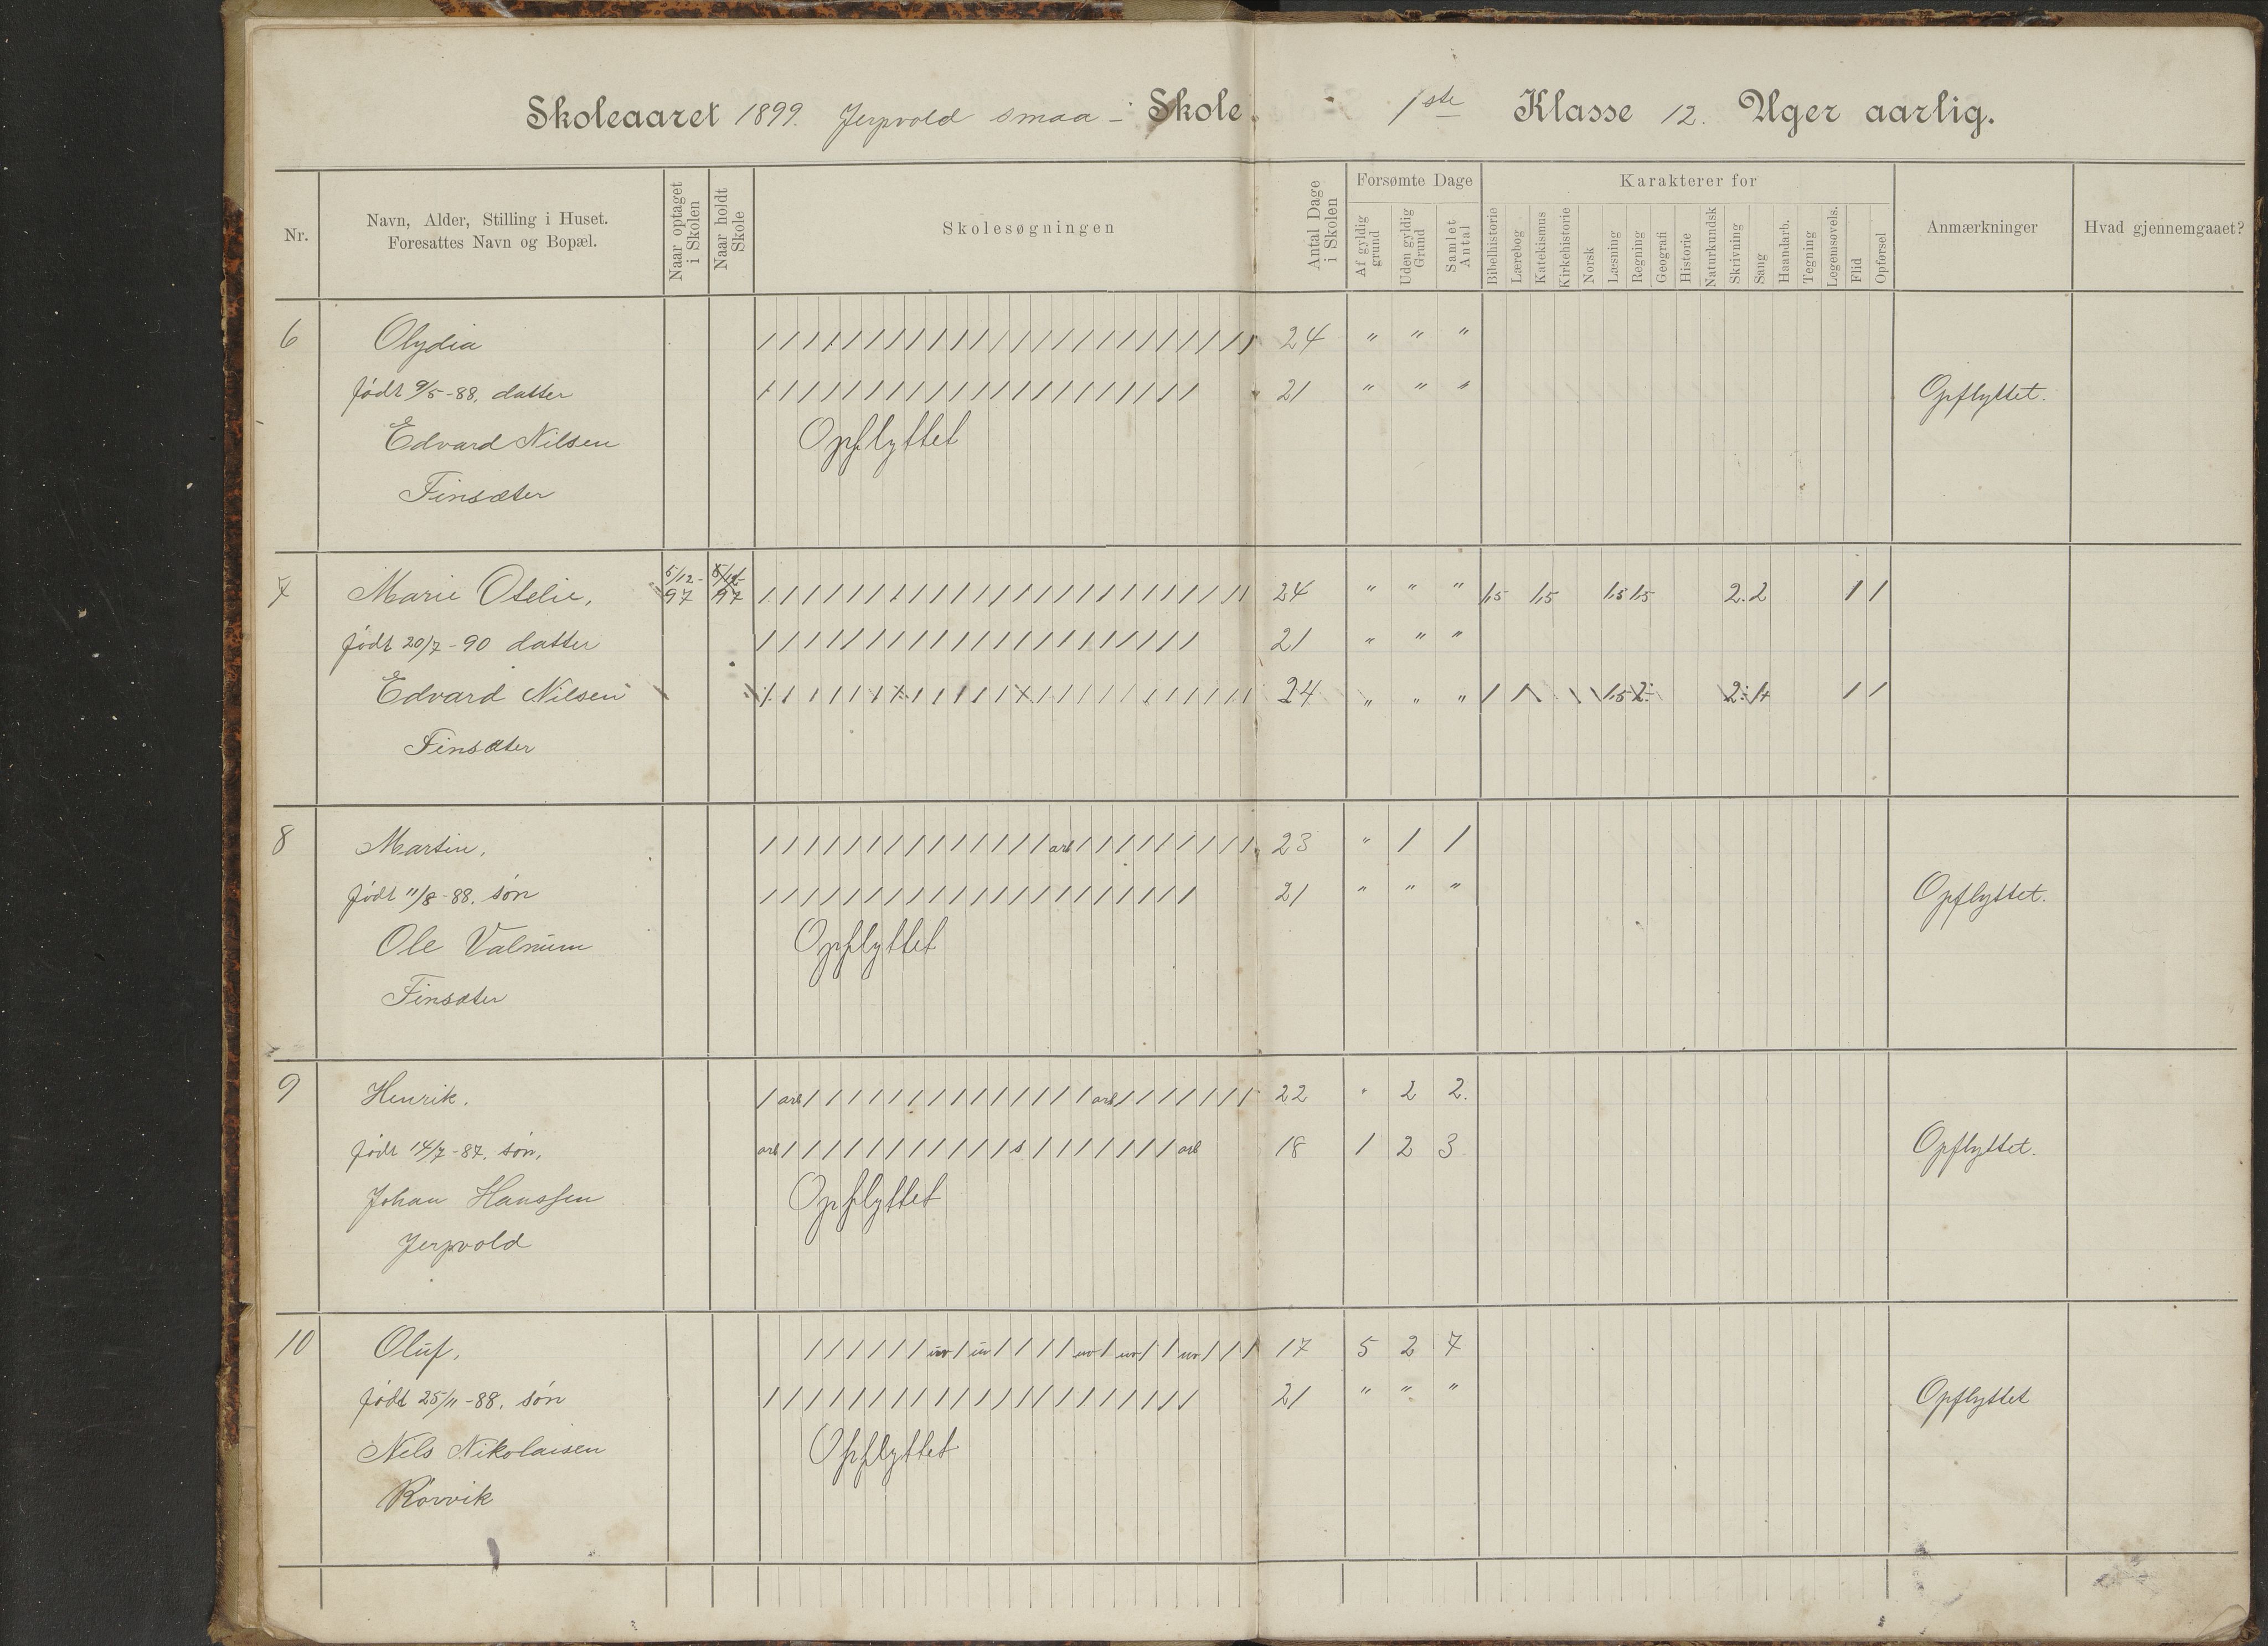 Skoleaaret 1899. Jerpvold smaa - Skole. 1ste Klasse 12. Uger aarlig.
Nr.
Navn, Alder, Stilling i Huset.
Foresattes Navn og Bopæl.
Naar optaget i Skolen
Naar holdt Skole
Skolesøgningen
Antal Dage i Skolen
Forsømte Dage
Af gyldig grund
Uden gyldig Grund
Samlet Antal
Karakterer for
Bibelhistorie
Lærebog
Katekismus
Kirkehistorie
Norsk
Læsning
Regning
Geografi
Historie
Naturkundsk
Skrivning
Sang
Haandarb.
Tegning
Legemsøvels.
Flid
Opførsel
Anmærkninger
Hvad gjennemgaaet?
6 Olydia / / / / / / / / / / / / / / / / / / / / / / / / 24 " " "
født 9/5-88. datter / / / / / / / / / / / / / / / / / / / / / 21 " " " Opflyttet.
Edvard Nilsen Opflyttet
Finsæter
7 Marie Otelie, 5/12-97 5/12-97 / / / / / / / / / / / / / / / / / / / / / / / / 24 " " " 1,5 1,5 1,5 1,5 2. 2 1 1
født 20/7-90 datter / / / / / / / / / / / / / / / / / / / / / 21 " " "
Edvard Nilsen / / / / / / / / / / / / / / / / / / / / / / / / 24 " " " 1 1 1,5 2 2 1 1
Finsæter
8 Martin, / / / / / / / / / / / / / / arb / / / / / / / / / 23 " 1 1
født 11/8-88. søn / / / / / / / / / / / / / / / / / / / / / 21 " " " Opflyttet.
Ole Valnum Opflyttet
Finsæter
9 Henrik. / arb / / / / / / / / / / / / / / arb / / / / / / / 22 " 2 2.
født 14/7-87. søn, arb / / / / / / / / / / / s / / / / / / / arb 18 1 2 3 Opflyttet.
Johan Hanssen Opflyttet
Jerpvold
10 Oluf, / / / / / / uv / uv / / / / uv / uv / / uv / / / 17 5 2 7
født 25/11-88. søn / / / / / / / / / / / / / / / / / / / / / 21 " " " Opflyttet
Nels Nikolaisen Opflyttet
Rørvik